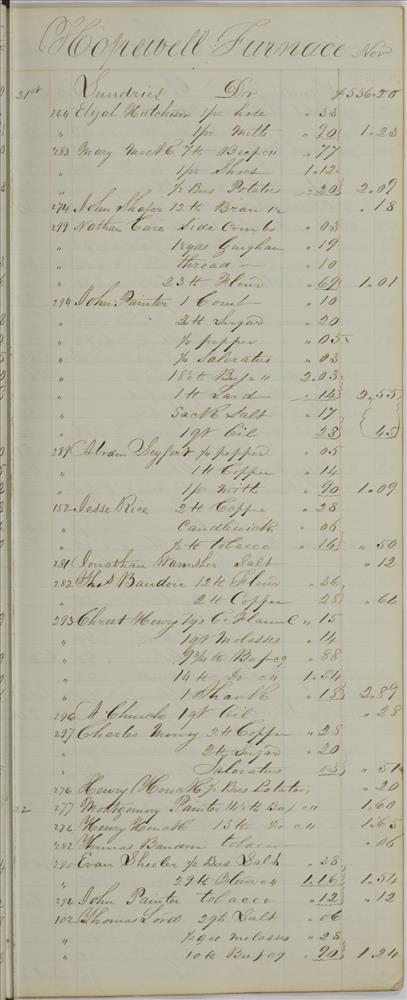 Hopewell Furnace Nov
21st Sundries Dr $536.20
264 Elijah Hutchison 1 pr hose " 33
" 1 pr Mitts " 90 1.23
283 Mary Mock 7 lb Beef @ 11 " 77
" 1 pr Shoes 1.12
" ½ Bus Potatoes " 20 2.09
274 John Shafer 12 lb Bran " 18
299 Nathan Care Side Combs " 03
" 1 yds Gingham " 19
" thread " 10
" 23 lb Flour " 69 1.01
294 John Painter 1 Comb " 10
" 2 lb Sugar " 20
" ¼ pepper " 05
" ½ Saleratus " 03
" 18½ lb Beef " 11 2.03
" 1 lb Lard " 14 2.55
" Sack Salt " 17
" 1 qt Oil 28 45
289 Abram Seyfert ¼ pepper " 05
" 1 lb Coffee " 14
" 1 pr Mitts " 90 1.09
152 Jesse Rice 2 lb Coffee " 28
" Candlewick " 06
" ½ lb tobacco " 16 " 50
281 Jonathan Salt " 12
282 Thos Baudon 12 lb Flour " 36
" 2 lb Coffee 28 " 64
293 Christ Henry yd C. Flannel " 15
" 1 qt Molasses " 14
" 9¾ lb Beef @ 9 " 88
" 14 lb Do @ 11 1.54
" 1 Shank " 18 2.89
296 A Church 1 qt Oil " 28
297 Charles Mowry 2 lb Coffee " 28
" 2 lb Sugar " 20
" Saleratus 03 " 51
276 Henry Houck ½ Bus Potatoes " 20
22 277 Montgomery Painter 14½ lb Beef @ 11 1.60
276 Henry Houck 15 lb Do @ 11 1.65
282 Thomas Baudon tobacco " 06
290 Evan Sheeler ½ Bus Salt " 38
" 29 lb Flour @ 4 1.16 1.54
294 John Painter tobacco " 12 " 12
102 Thomas Lord 2 qts Salt " 06
" ½ gal Molasses " 28
" 10 lb Beef @ 9 " 90 1.24